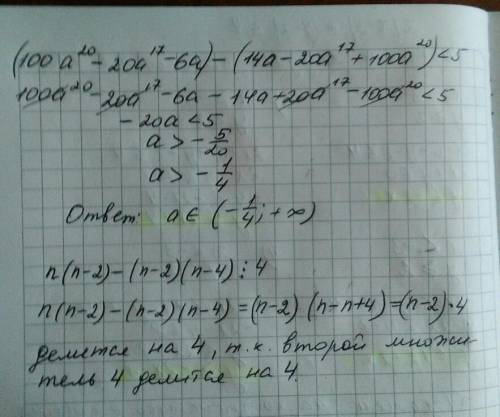 (100a²⁰ - 20a¹⁷ - 6a) - (14a - 20a¹⁷ + 100a²⁰) < 5
100a²⁰ - 20a¹⁷ - 6a - 14a + 20a¹⁷ - 100a²⁰ < 5
- 20a < 5
a > - 5/20
a > - 1/4
Ответ: a ∈ (- 1/4; + ∞)
n(n-2) - (n-2)(n-4) ⋮ 4
n(n-2) - (n-2)(n-4) = (n-2)(n-n+4) = (n-2)·4
делится на 4, т.к. второй множи-
тель 4 делится на 4.